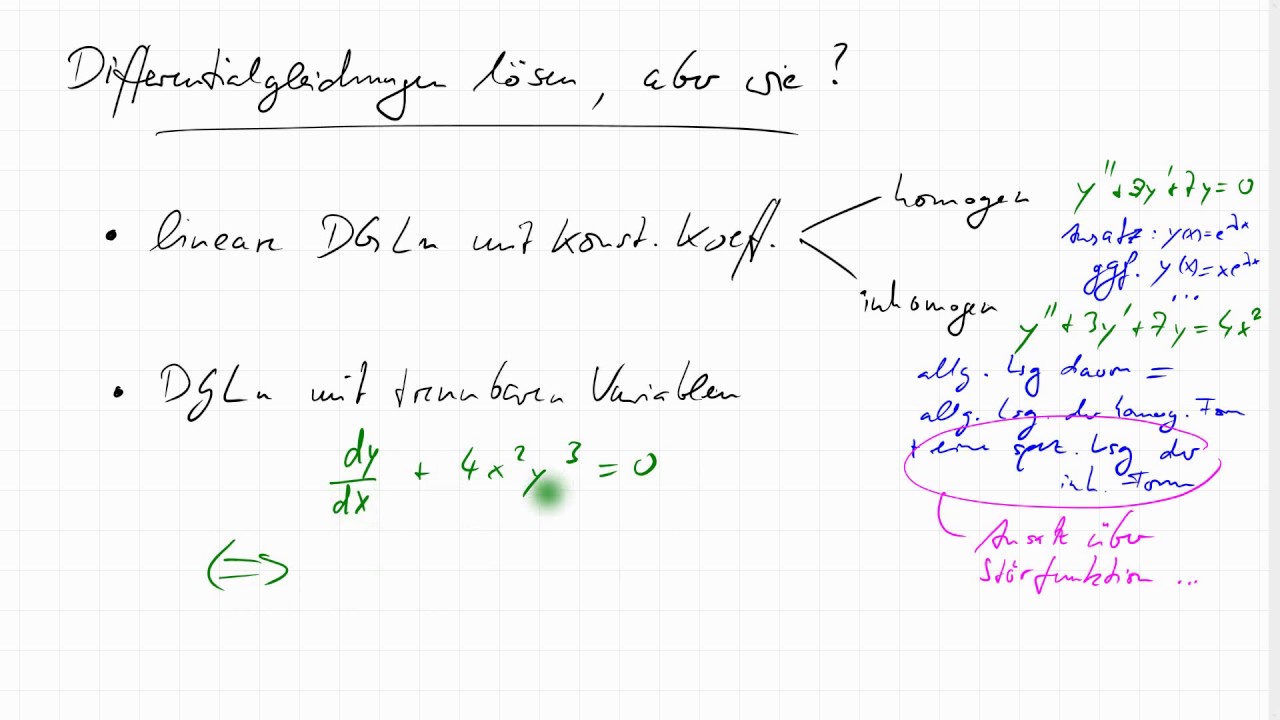 Differentialgleichungen lösen, aber wie?
• lineare DGLn mit konst. Koeff.
homogen
y'' + 3y' + 7y = 0
Ansatz: y(x) = e^λx
ggf. y(x) = xe^λx
...
inhomogen
y'' + 3y' + 7y = 4x²
allg. Lsg davon =
allg. Lsg. der homog. Form
+ eine spez. Lsg der
inh. Form
Ansatz über
Störfunktion ...
• DGLn mit trennbaren Variablen
dy/dx + 4x²y³ = 0
⇔